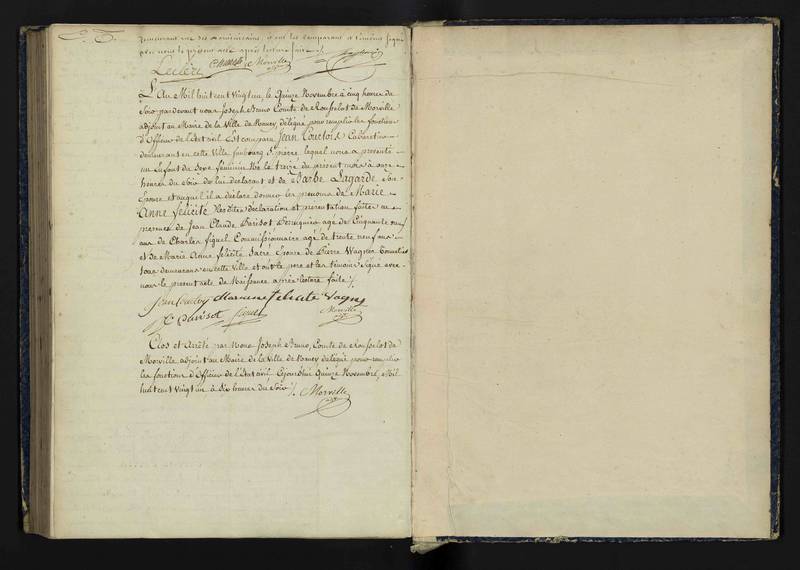 demeurant rue des Dominicains, et ont les comparant et témoins signé
avec nous le présent acte après lecture faite /.
Leclerc Morville
L'An Mil huit cent vingt un, le Quinze Novembre à cinq heures du
Soir pardevant nous Joseph Bruno Comte de Rousselot de Morville
adjoint au Maire de la Ville de Nancy, délégué pour remplir les fonctions
d'Officier de l'Etat civil Est comparu Jean Courtois Cabaretier
demeurant en cette Ville faubourg St pierre lequel nous a présenté
un Enfant du Sexe féminin Né le treize du présent mois à onze
heures du Soir de lui déclarant et de Barbe Lagarde Son
Epouse et auquel il a déclaré donner les prénoms de Marie
Anne felicité Les dites déclaration et présentation faites en
présence de Jean Claude Parisot Perruquier agé de Cinquante neuf
ans de Charles figuel Commissionnaire agé de trente neuf ans
et de Marie Anne felicité Sacré Epouse de Pierre Wagner
tous demeurans en cette Ville et ont le pere et les témoins Signé avec
nous le présent acte de Naissance après lecture faite /.
Jean Courtois Marianne felicité Vagnr
JC Parisot figuel Morville
Clos et arrêté par Nous Joseph Bruno, Comte de Rousselot de
Morville adjoint au Maire de la Ville de Nancy délégué pour remplir
les fonctions d'Officier de l'Etat civil Cejourdhui Quinze Novembre, Mil
huit cent Vingt un à Six heures du Soir /. Morville